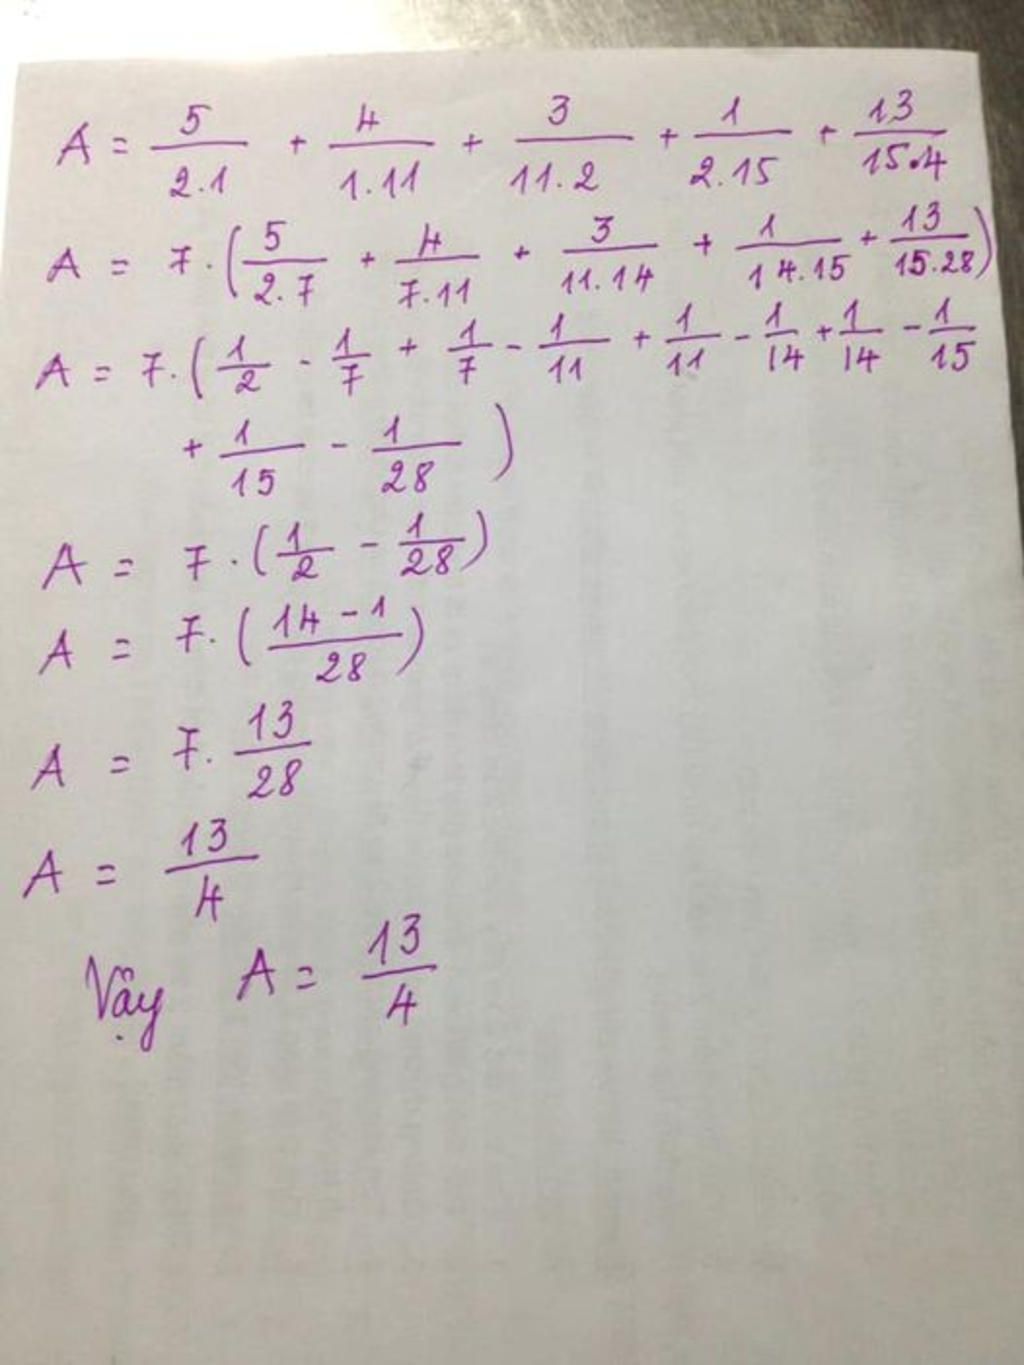 A = 5/2.1 + 4/1.11 + 3/11.2 + 1/2.15 + 13/15.4
A = 7.(5/2.7 + 4/7.11 + 3/11.14 + 1/14.15 + 13/15.28)
A = 7.(1/2 - 1/7 + 1/7 - 1/11 + 1/11 - 1/14 + 1/14 - 1/15
+ 1/15 - 1/28)
A = 7.(1/2 - 1/28)
A = 7.(14-1/28)
A = 7.13/28
A = 13/4
Vậy A = 13/4